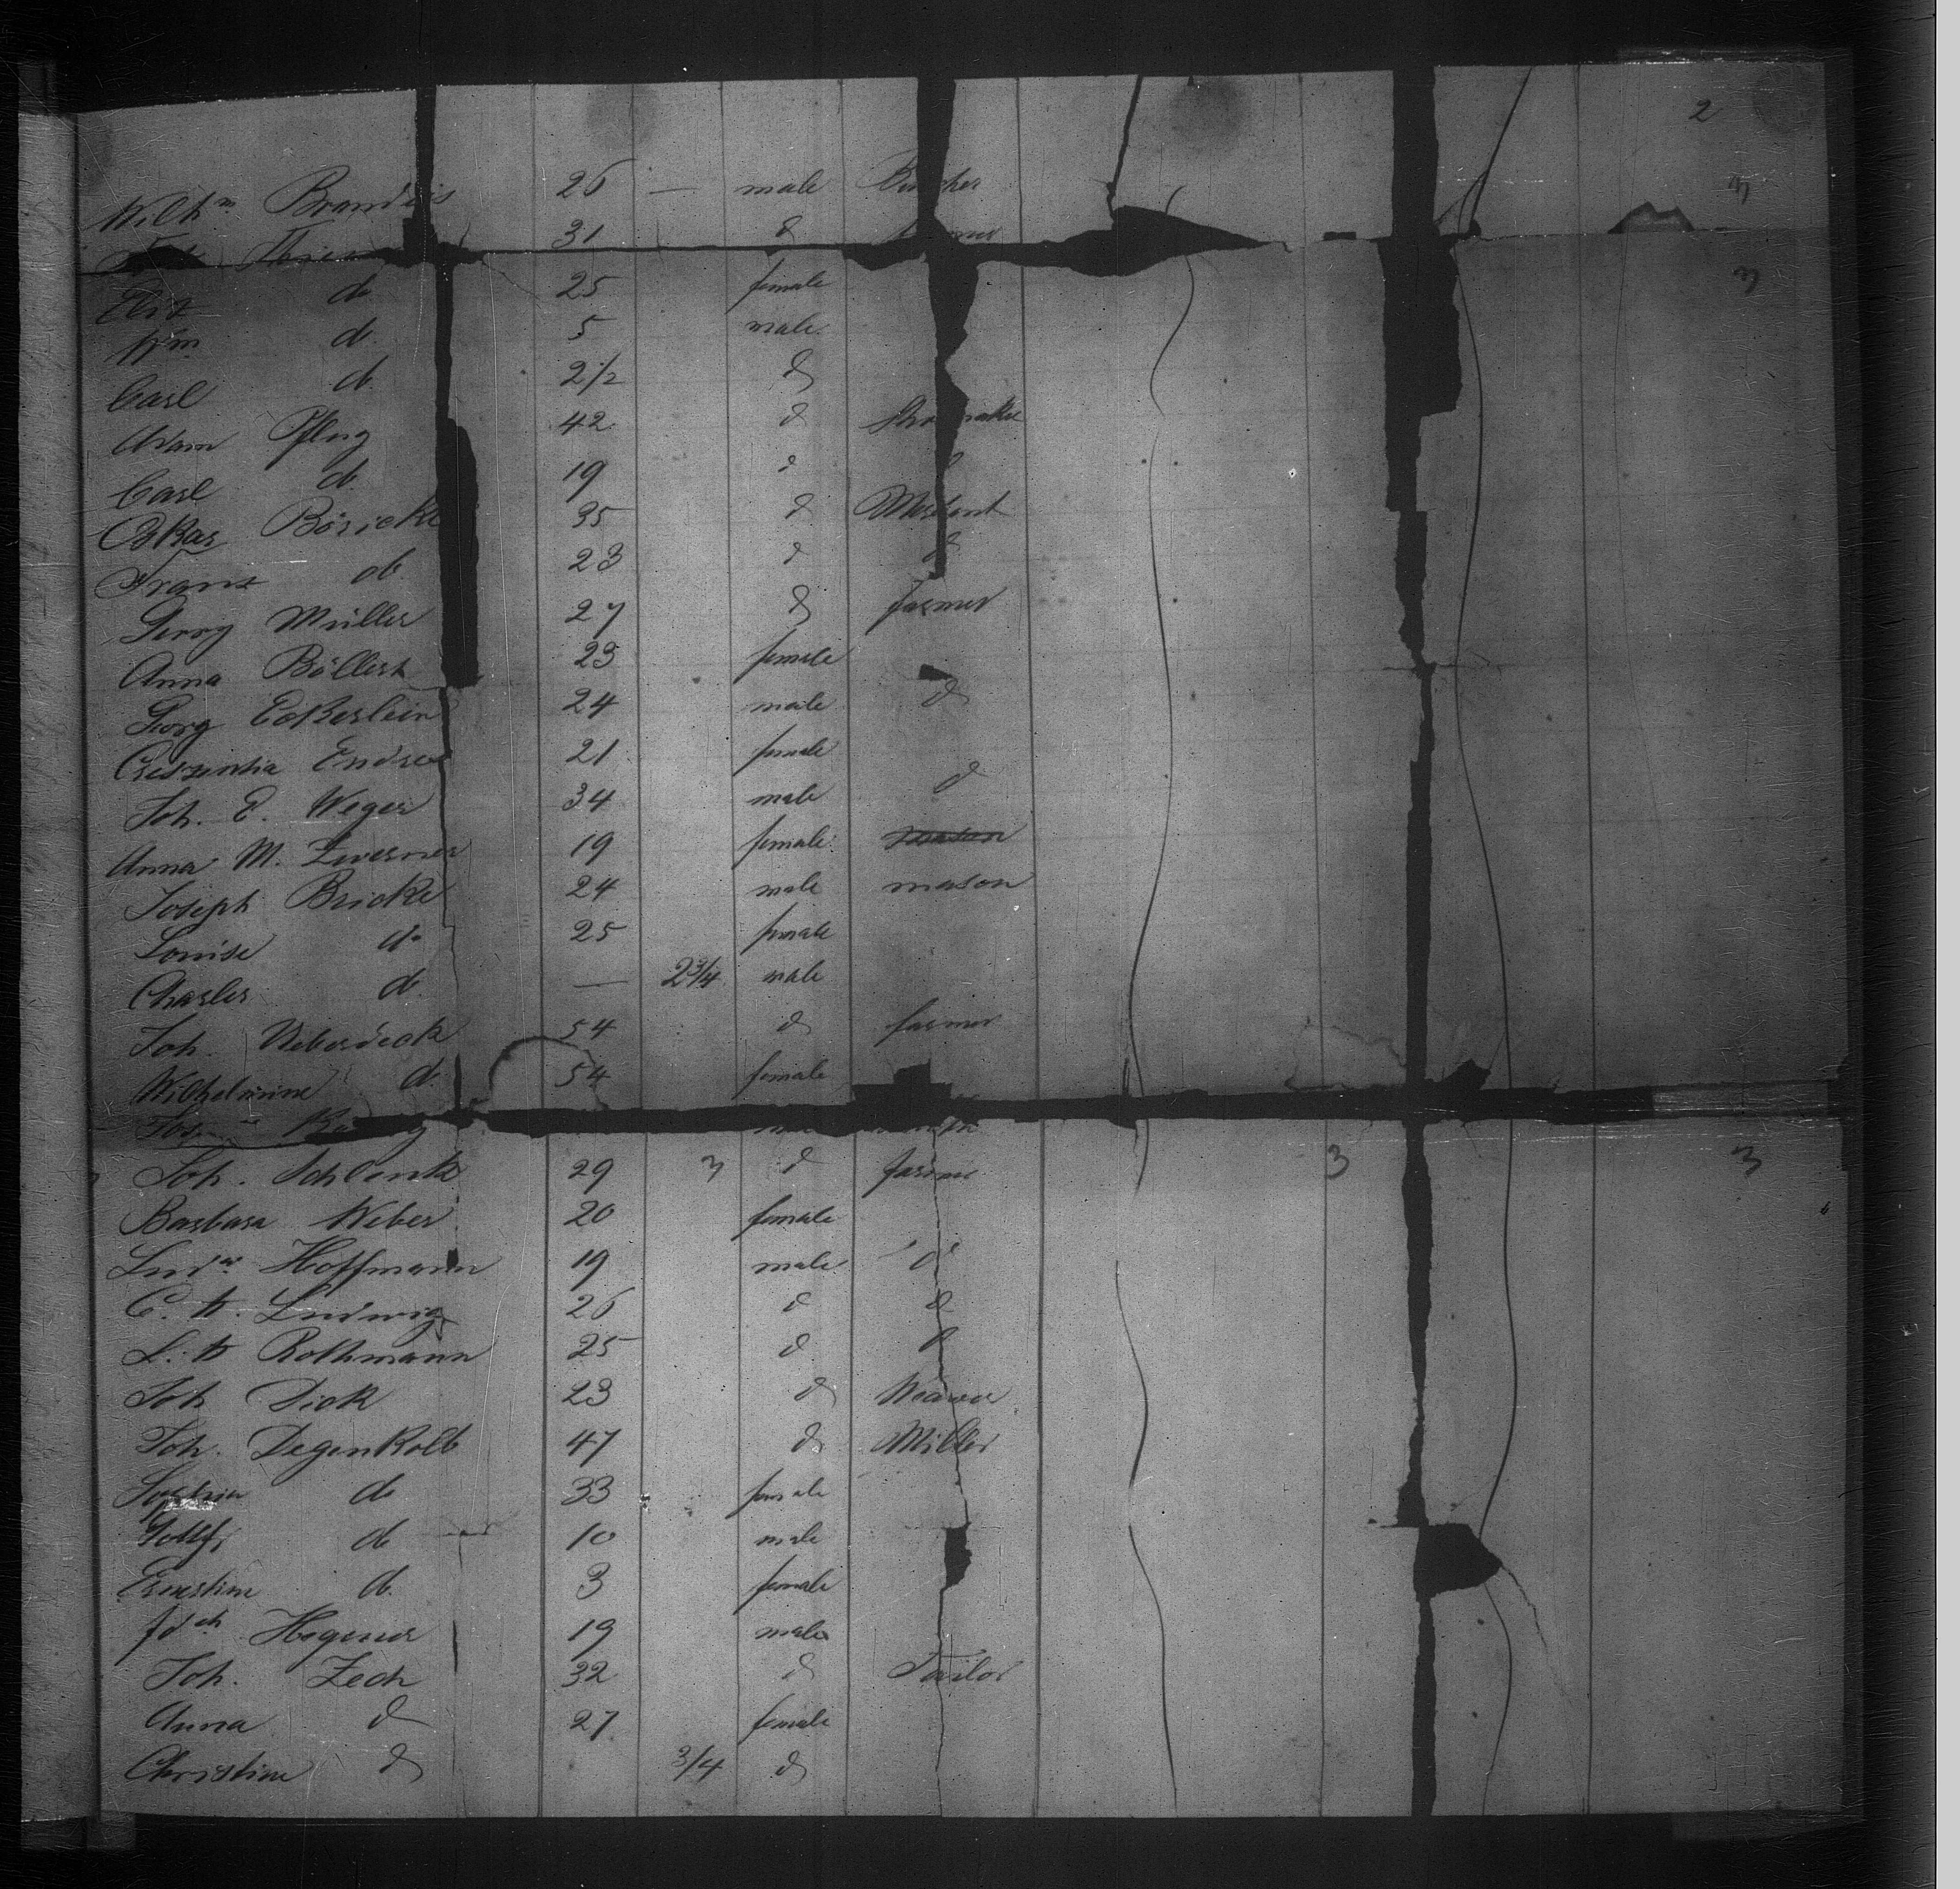 2
Wilhm Brandeis 26 — male
31 d
Eliz do 25 female
Wm do 5 male
Carl do 2 1/2 d
Adam Pflug 42 d
Carl do 19 d
Oskar Böricke 35 d
Franz do 23 d d
Georg Müller 27 d farmer
Anna Böllert 23 female
Georg Eckerlein 24 male d
Creszentia Endres 21 female
Joh. E. Weger 34 male d
Anna M. Zwerner 19 female mason
Joseph Bricke 24 male mason
Louise do 25 female
Charles do — 2 3/4 male
Joh. Ueberdeck 54 d farmer
Wilhelmine d. 54 female
Joh. Schlenk 29 3 d farmer 3 3
Barbara Weber 20 female
Ludw Hoffmann 19 male d
C. H. Ludwig 26 d d
L. H Rothmann 25 d d
Joh Dick 23 d Weaver
Joh. Degenkolb 47 d Miller
do 33 female
do 10 male
Ernestine do. 3 female
Fdch Hegener 19 male
Joh. Zech 32 d Tailor
Anna d 27 female
Christine d 3/4 d